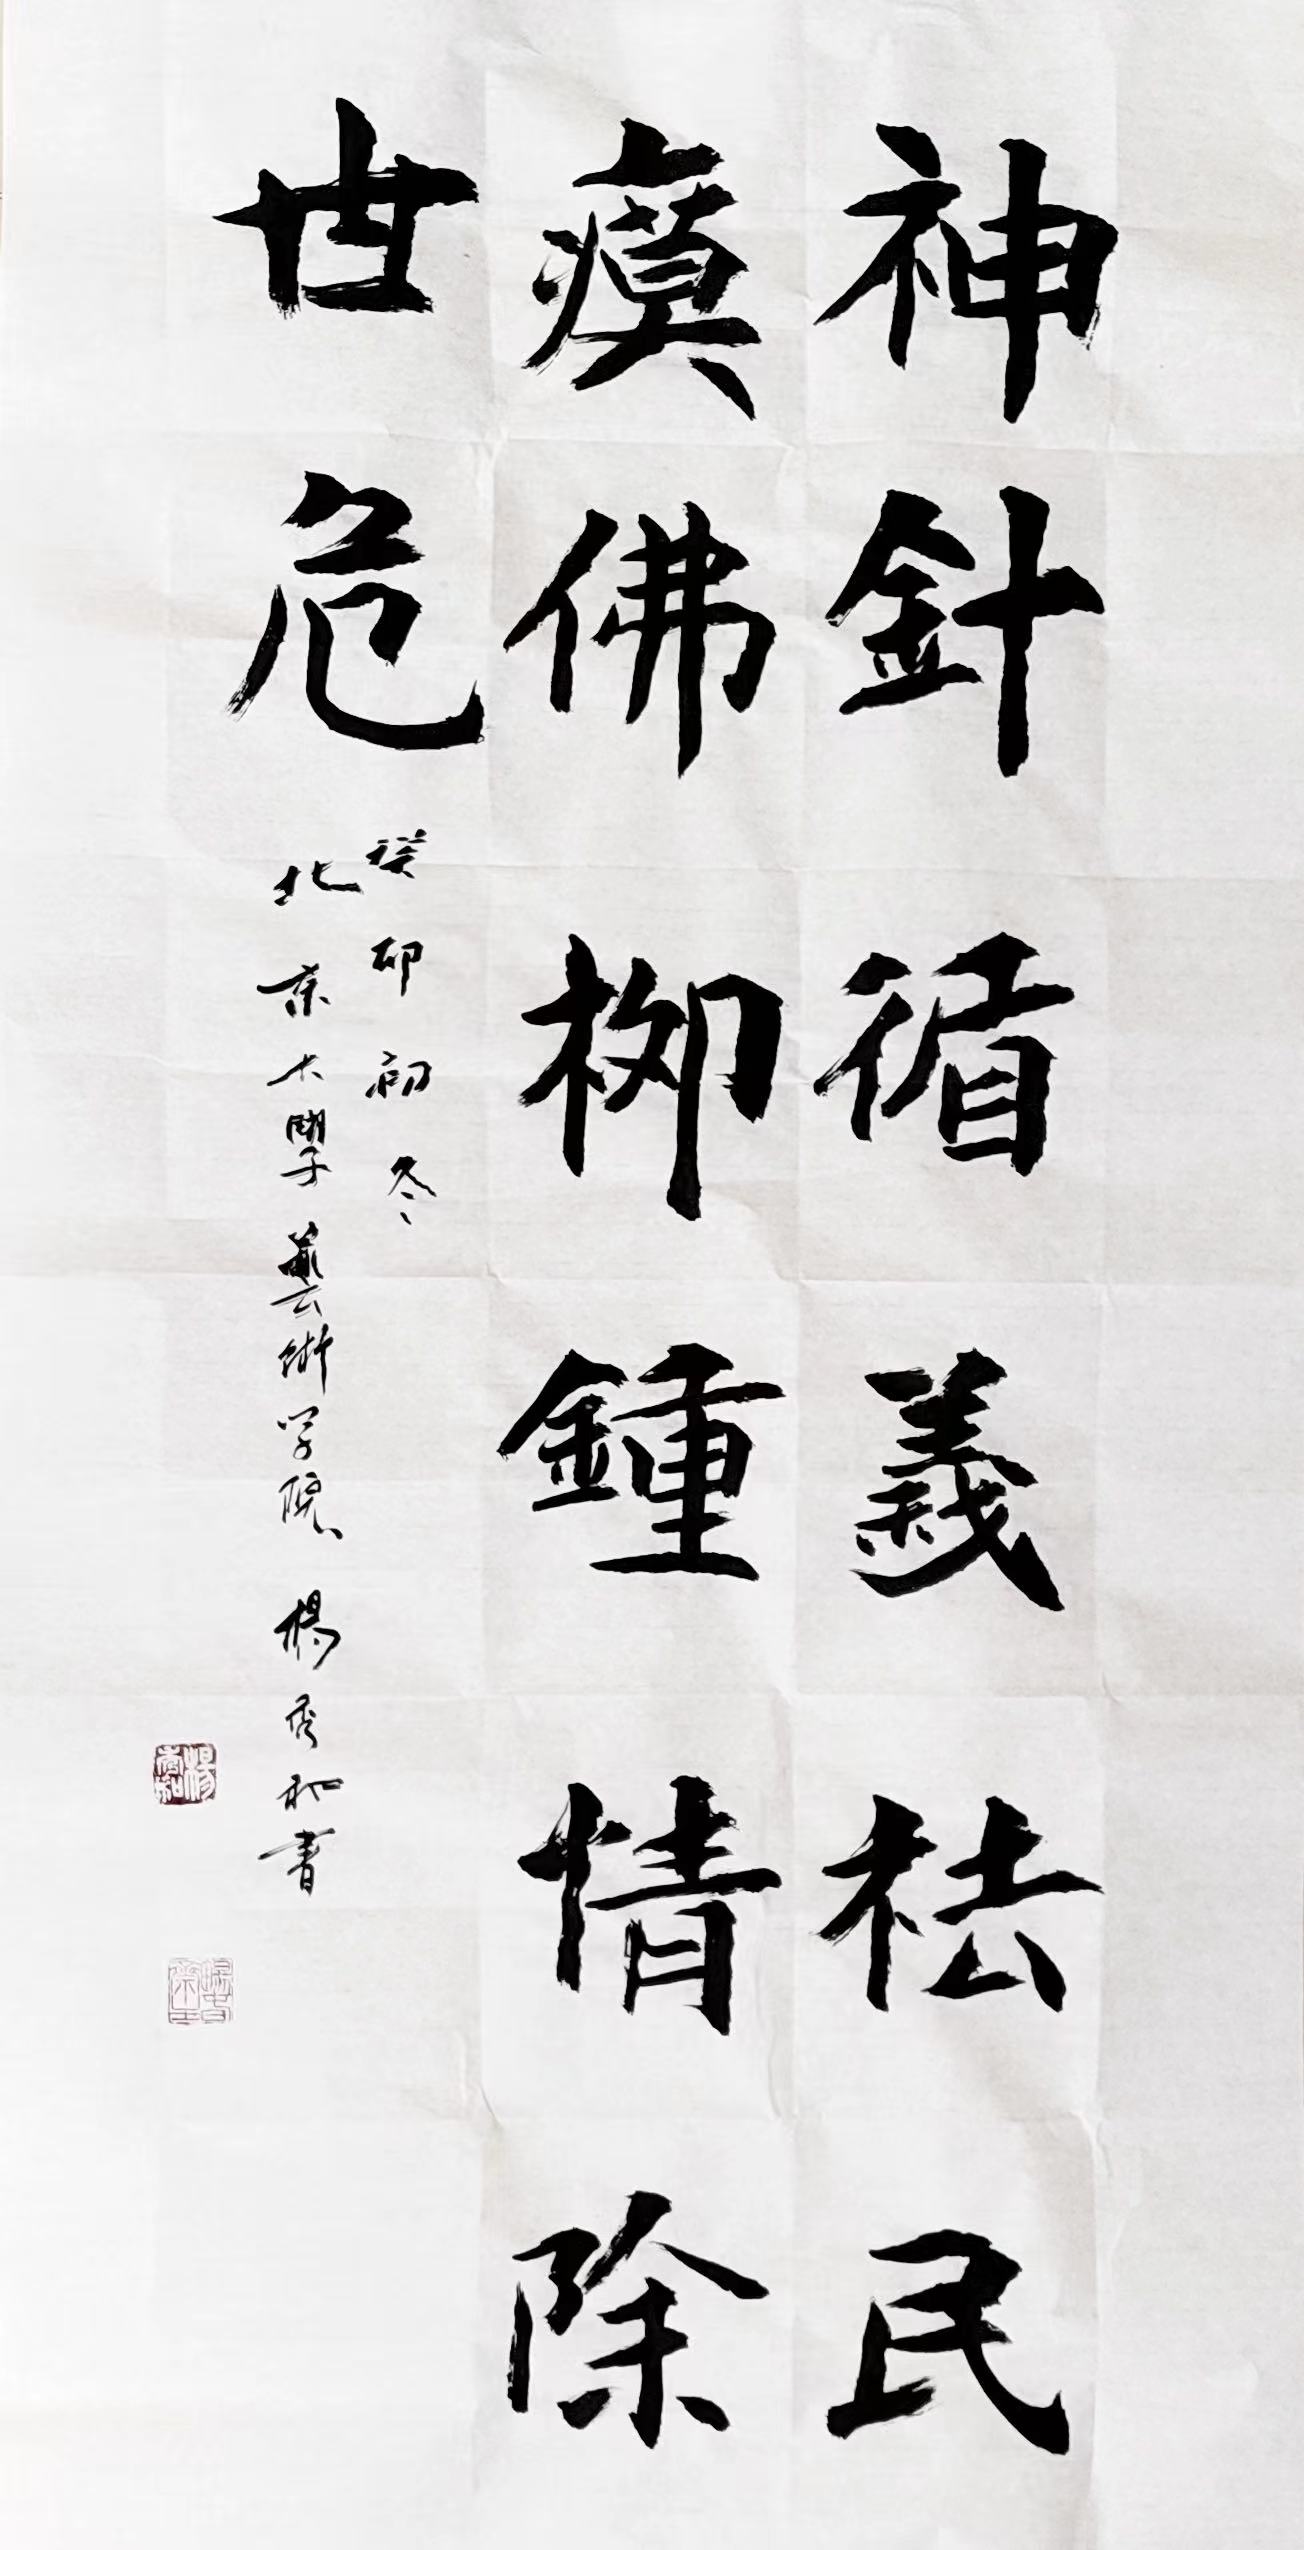 神針循義祛民
瘼佛柳鍾情除
世危
癸卯初冬
北京大學藝術学院楊秀和書